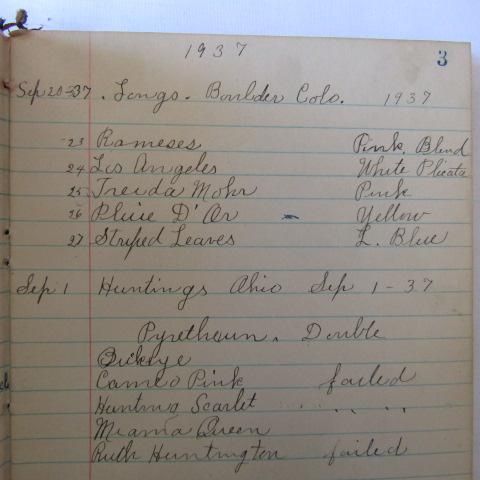 1937
3
Sep 20-37. Longs. Boulder Colo. 1937
23 Rameses Pink Blend
24 Los Angeles White Plicata
25 Treida Mohr Pink
26 Pluie D'Or Yellow
27 Striped Leaves L. Blue
Sep 1 Huntings Ohio Sep 1-37
Pyrethrun. Double
Buckeye
Cameo Pink failed
Hunting Scarlet " "
Miama Queen
Ruth Huntington failed